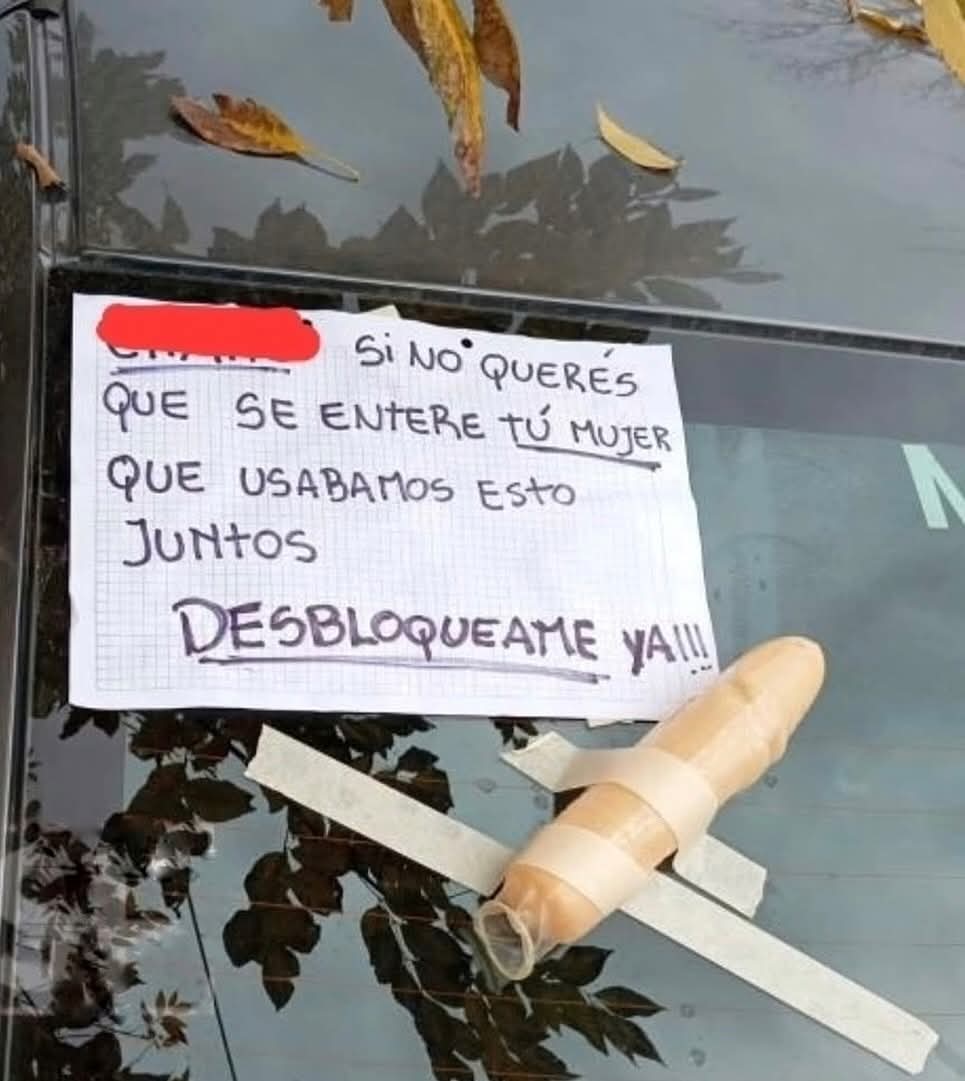 Si NO QUERÉS
QUE SE ENTERE TÚ MUJER
QUE USABAMOS ESTO
JUNTOS
DESBLOQUEAME YA!!!